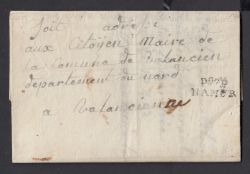 Soit adresé
aux Citoyen Maire de
la Comune de valancien
departement du nord
a valancienne
P93P
NAMUR